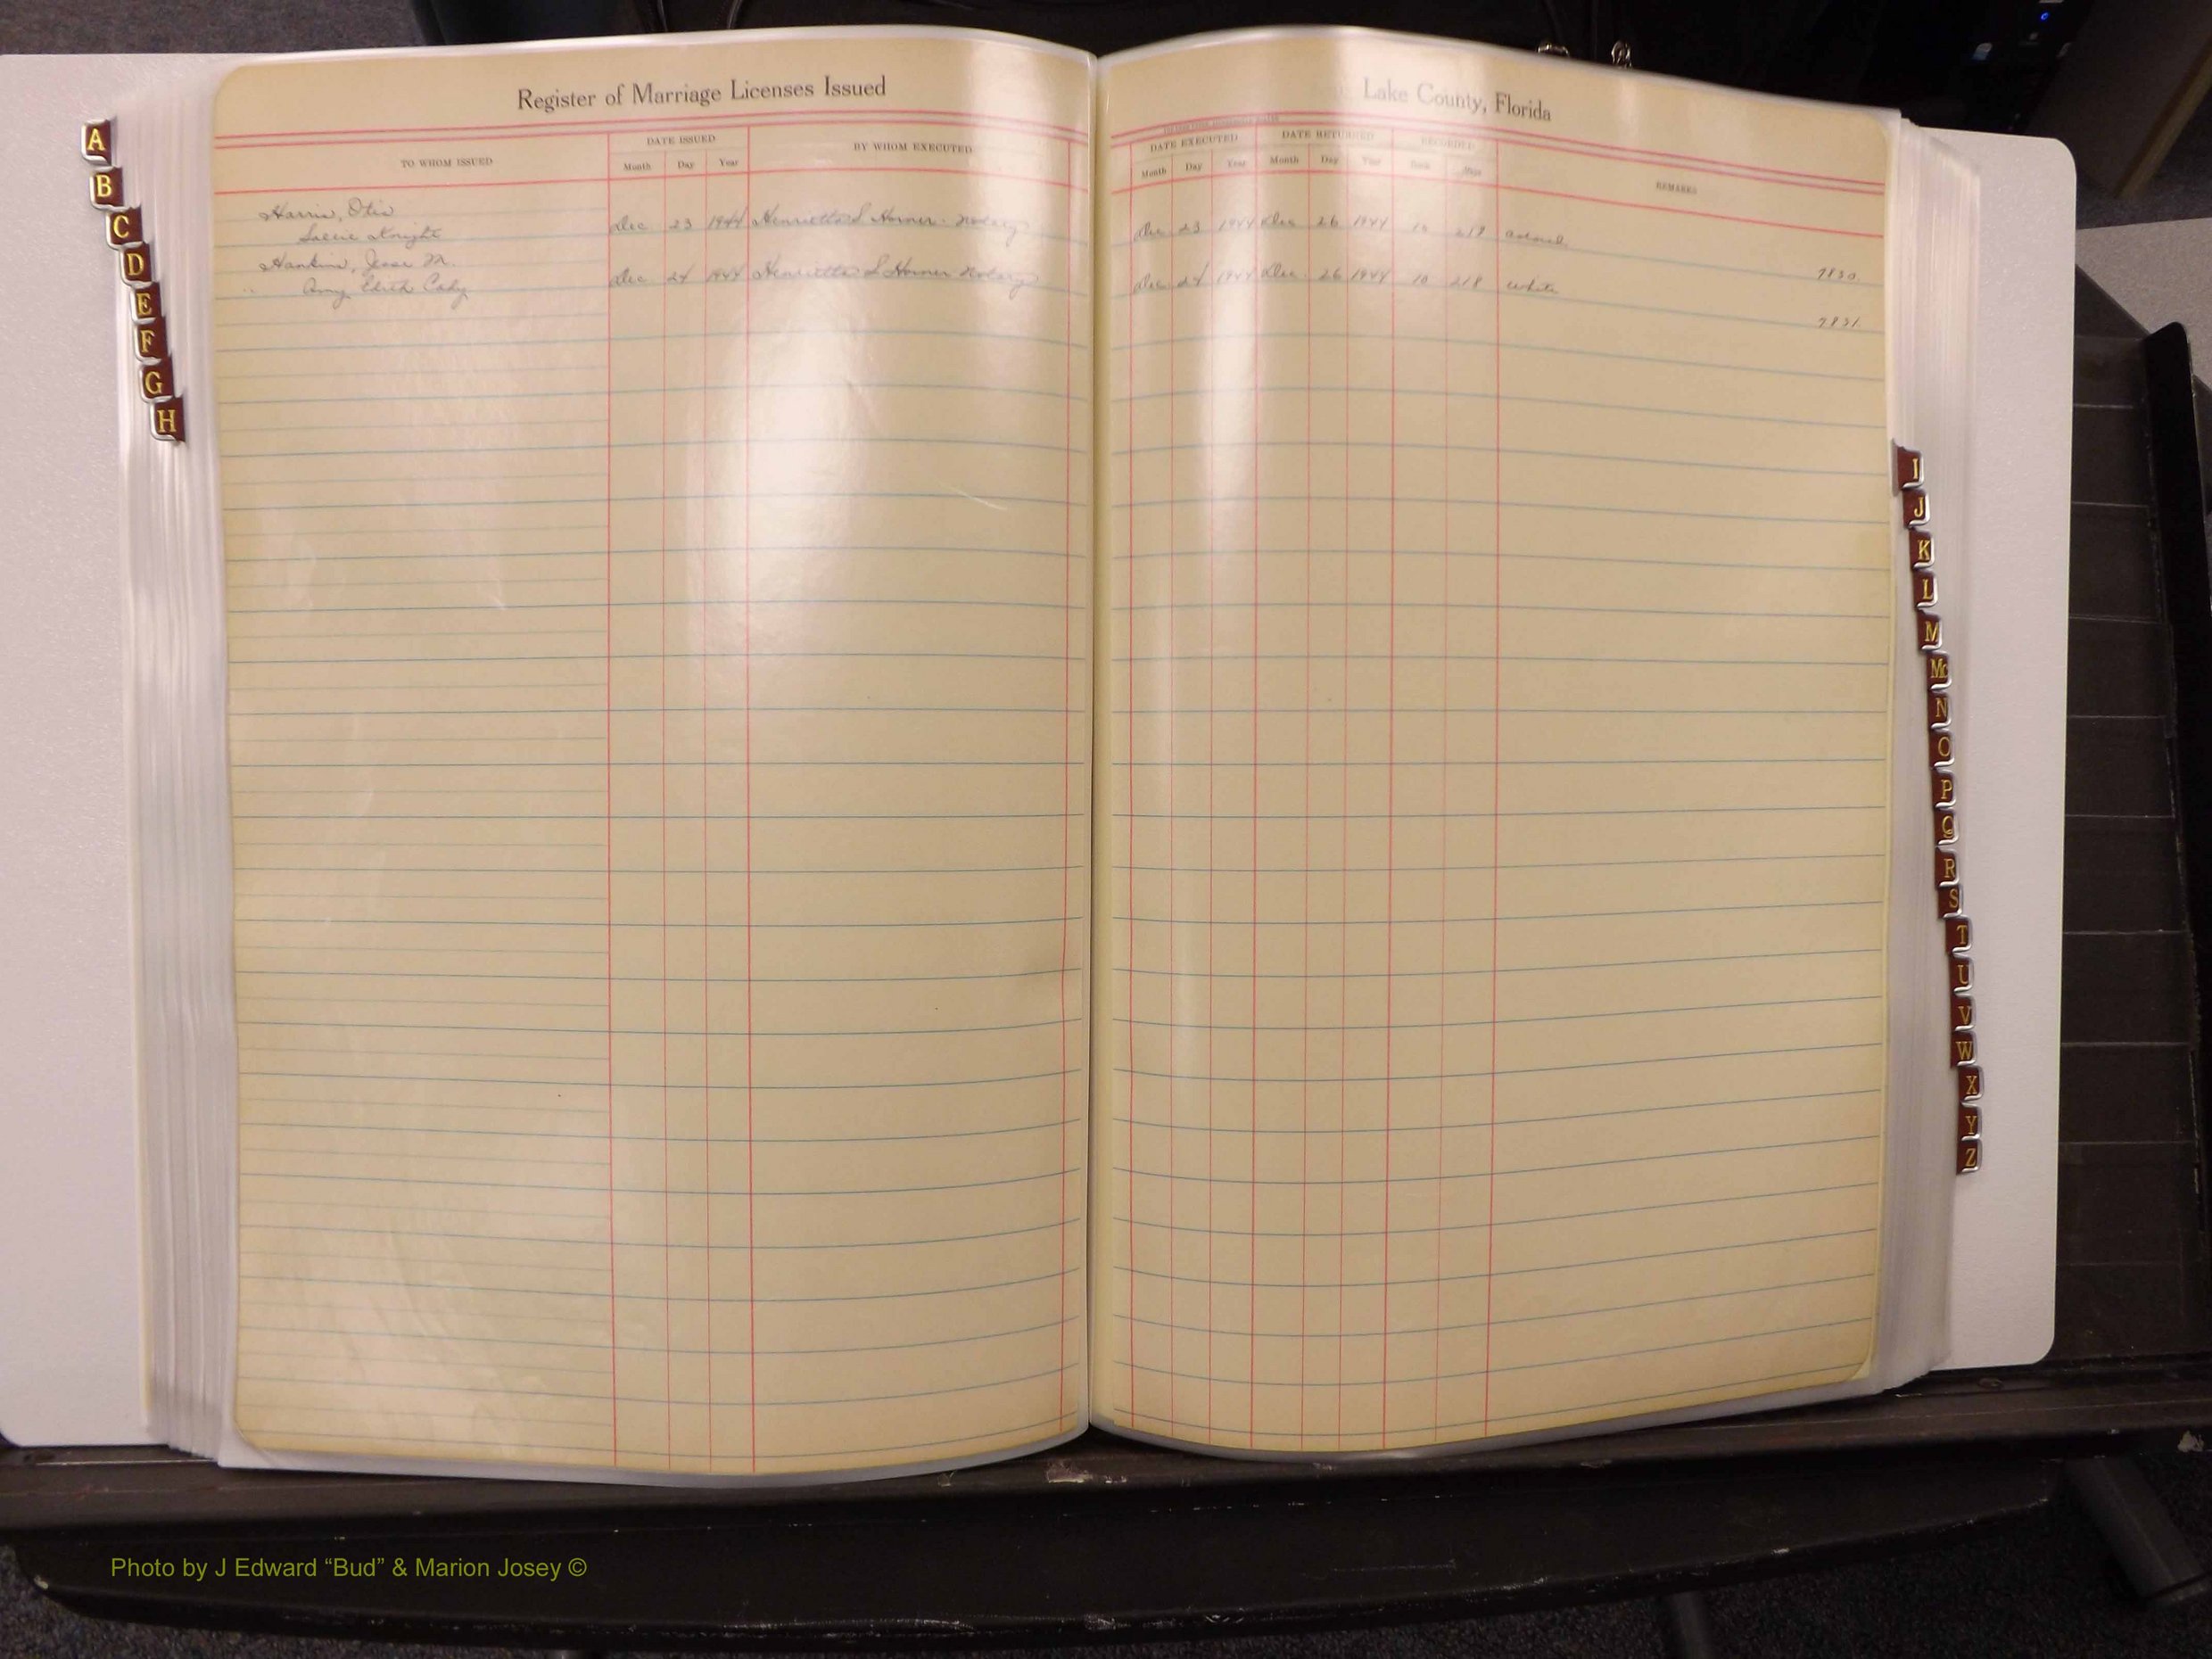 Register of Marriage Licenses Issued
Lake County, Florida
TO WHOM ISSUED
DATE ISSUED
Month Day Year
BY WHOM EXECUTED
DATE EXECUTED
Month Day Year
DATE RETURNED
Month Day Year
RECORDED
Book Page
REMARKS
Harris, Otis
Sallie Knight
Dec 23 1944 Henrietta S Horner Notary
Dec 23 1944 Dec 26 1944 10
7830
Hankins, Jesse M.
" Amy Edith Cady
Dec 24 1944 Henrietta S Horner Notary
Dec 24 1944 Dec 26 1944 10 218 White
7831
A
B
C
D
E
F
G
H
I
J
K
L
M
Mc
N
O
P
Q
R
S
T
U
V
W
X
Y
Z
Photo by J Edward “Bud” & Marion Josey ©